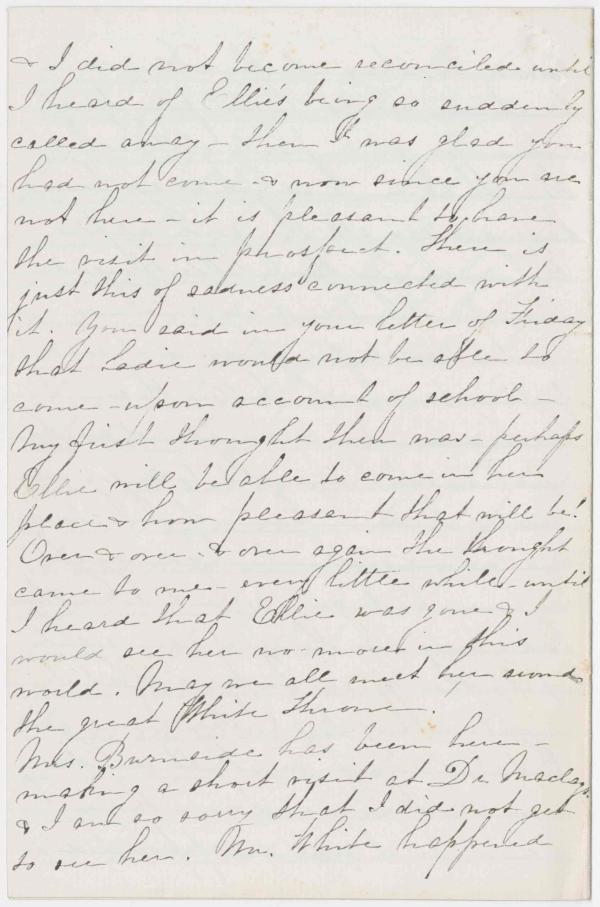 & I did not become reconciled until
I heard of Ellie's being so suddenly
called away - then I was glad you
had not come - & now since you are
not here - it is pleasant to have
the visit in prospect. There is
just this of sadness connected with
it. You said in your letter of Friday
that Sadie would not be able to
come - upon account of school -
My first thought then was - perhaps
Ellie will be able to come in her
place & how pleasant that will be!
Over & over - & over again the thought
came to me - every little while - until
I heard that Ellie was gone & I
would see her no more in this
world. May we all meet her around
the great White Throne.
Mrs. Burnside has been here -
making a short visit at Dr. Maclay's
& I am so sorry that I did not get
to see her. Wm. White happened